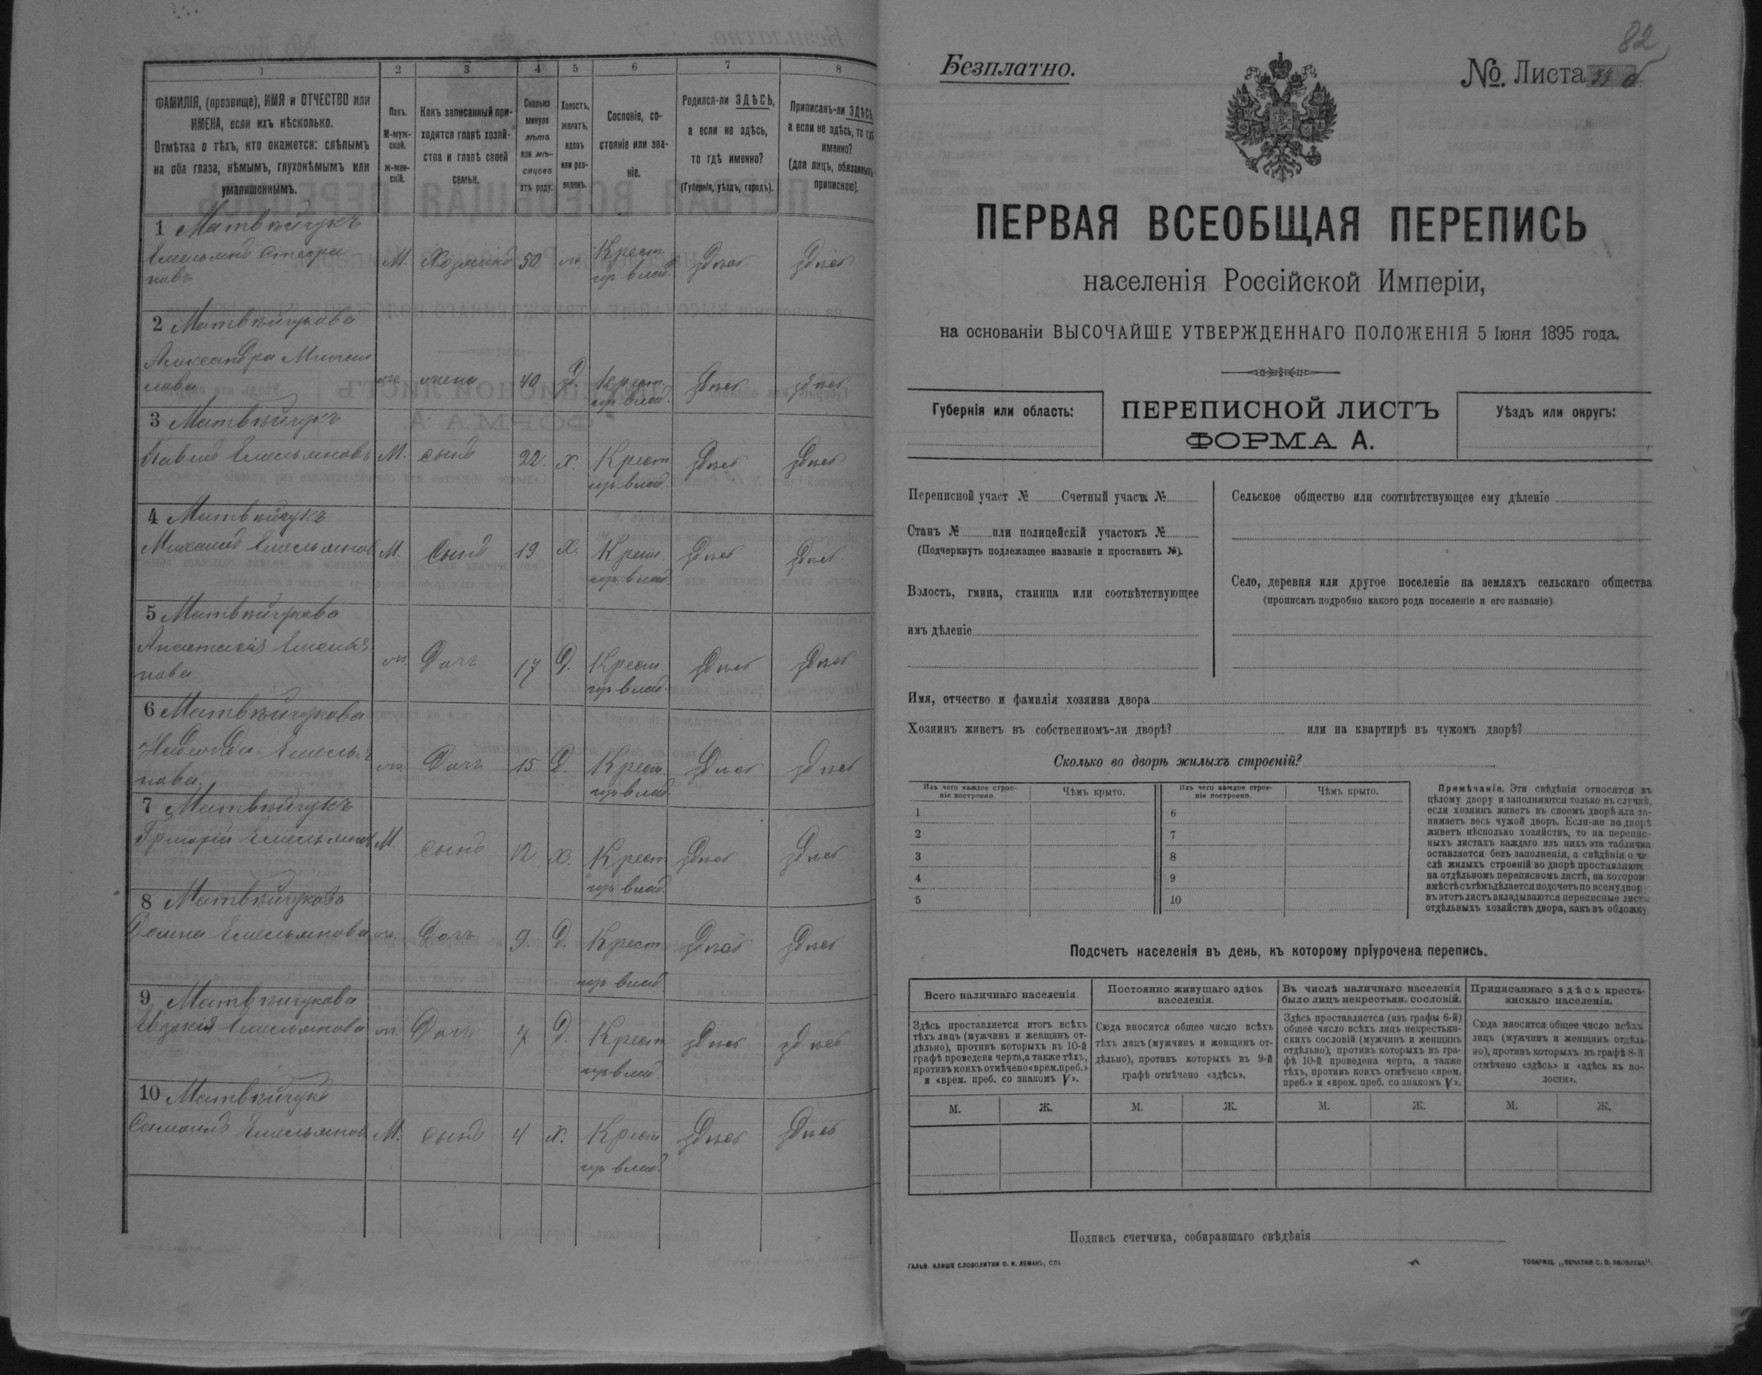 1 2 3 4 5 6 7 8
ФАМИЛІЯ, (прозвище), ИМЯ и ОТЧЕСТВО или
ИМЕНА, если ихъ нѣсколько.
Отмѣтка о тѣхъ, кто окажется: слѣпымъ
на оба глаза, нѣмымъ, глухонѣмымъ или
умалишоннымъ.
Полъ.
М-муж-
ской.
ж-жен-
скій.
Какъ записанный при-
ходится главѣ хозяй-
ства и главѣ своей
семьи.
Сколько
минуло
лѣтъ
или мѣ-
сяцевъ
отъ роду.
Холостъ,
женатъ,
вдовъ
или раз-
веденъ.
Сословіе, со-
стояніе или зва-
ніе.
Родился-ли ЗДѢСЬ,
а если не здѣсь,
то гдѣ именно?
(Губернія, уѣздъ, городъ).
Приписанъ-ли ЗДѢСЬ,
а если не здѣсь, то гдѣ
именно?
(для лицъ, обязанныхъ
припискою).
1 Матвѣйчукъ
Емельянъ Стефа
новъ М. Хозяинъ 50 ж Крест. здѣсь здѣсь
2 Матвѣйчукова
Александра
жена 40 Крест. здѣсь здѣсь
3 Матвѣйчукъ
Павелъ Емельяновъ М. сынъ 22 х. Крест. здѣсь здѣсь
4 Матвѣйчукъ
Михаилъ Емельянов М. Сынъ 19 х. Крест. здѣсь здѣсь
5 Матвѣйчукова
Анастасія Емелья
нова ж. Дочь 17 Д. Крест. здѣсь здѣсь
6 Матвѣйчукова
Емелья
нова ж. Дочь 15 Д. Крест. здѣсь здѣсь
7 Матвѣйчукъ
Григорій Емельянов М. сынъ 12 х. Крест. здѣсь здѣсь
8 Матвѣйчукова
Домна Емельянова ж. Дочь 9 Д. Крест. здѣсь здѣсь
9 Матвѣйчукова
Евдокія Емельянова ж. Дочь 7 Д. Крест. здѣсь здѣсь
10 Матвѣйчукъ
Самоилъ Емельянов М. сынъ 4 х. Крест. здѣсь здѣсь
82
Безплатно.
№ Листа
ПЕРВАЯ ВСЕОБЩАЯ ПЕРЕПИСЬ
населенія Россійской Имперіи,
на основаніи ВЫСОЧАЙШЕ УТВЕРЖДЕННАГО ПОЛОЖЕНІЯ 5 Іюня 1895 года.
Губернія или область:
ПЕРЕПИСНОЙ ЛИСТЪ
ФОРМА А.
Уѣздъ или округъ:
Переписной участ № Счетный участк №
Станъ № или полицейскій участокъ №
(Подчеркнуть подлежащее названіе и проставить №).
Волость, гмина, станица или соотвѣтствующее
имъ дѣленіе
Сельское общество или соотвѣтствующее ему дѣленіе
Село, деревня или другое поселеніе на земляхъ сельскаго общества
(прописать подробно какого рода поселеніе и его названіе)
Имя, отчество и фамилія хозяина двора
Хозяинъ живетъ въ собственномъ-ли дворѣ? или на квартирѣ въ чужомъ дворѣ?
Сколько во дворѣ жилыхъ строеній?
Изъ чего каждое строе-
ніе построено.
Чѣмъ крыто.
Изъ чего каждое строе-
ніе построено.
Чѣмъ крыто.
1 6
2 7
3 8
4 9
5 10
Примѣчаніе. Эти свѣдѣнія относятся къ
цѣлому двору и заполняются только въ случаѣ,
если хозяинъ живетъ въ своемъ дворѣ или за-
нимаетъ весь чужой дворъ. Если-же во дворѣ
живетъ нѣсколько хозяйствъ, то на перепис-
ныхъ листахъ каждаго изъ нихъ эта табличка
оставляется безъ заполненія, а свѣдѣнія о чи
слѣ жилыхъ строеній во дворѣ проставляютс
на отдѣльномъ переписномъ листѣ, на котором
вмѣстѣ съ тѣмъ дѣлается подсчетъ по всему двор
въ этотъ листъ вкладываются переписные листы
отдѣльныхъ хозяйствъ двора, какъ въ обложку
Подсчетъ населенія въ день, къ которому пріурочена перепись.
Всего наличнаго населенія.
Здѣсь проставляется итогъ всѣхъ
тѣхъ лицъ (мужчинъ и женщинъ от-
дѣльно), противъ которыхъ въ 10-й
графѣ проведена черта, а также тѣхъ,
противъ коихъ отмѣчено «врем. преб.»
и «врем. преб. со знакомъ V».
Постоянно живущаго здѣсь
населенія.
Сюда вносится общее число всѣхъ
тѣхъ лицъ (мужчинъ и женщинъ от-
дѣльно), противъ которыхъ въ 9-й
графѣ отмѣчено «здѣсь».
Въ числѣ наличнаго населенія
было лицъ некрестьян. сословій.
Здѣсь проставляется (изъ графы 6-й)
общее число всѣхъ лицъ некрестьян-
скихъ сословій (мужчинъ и женщинъ
отдѣльно), противъ которыхъ въ гра-
фѣ 10-й проведена черта, а также
тѣхъ, противъ коихъ отмѣчено «врем.
преб.» и «врем. преб. со знакомъ V».
Приписаннаго здѣсь кресть-
янскаго населенія.
Сюда вносится общее число всѣхъ
лицъ (мужчинъ и женщинъ отдѣль-
но), противъ которыхъ въ графѣ 8-й
отмѣчено «здѣсь» и «здѣсь въ во-
лости».
М. Ж. М. Ж. М. Ж. М. Ж.
Подпись счетчика, собиравшаго свѣдѣнія
ГАЛЬВ. КЛИШЕ СЛОВОЛИТНИ О. И. ЛЕМАНЪ, СПБ
ТОВАРИЩ. „ПЕЧАТНИ С. П. ЯКОВЛЕВА".